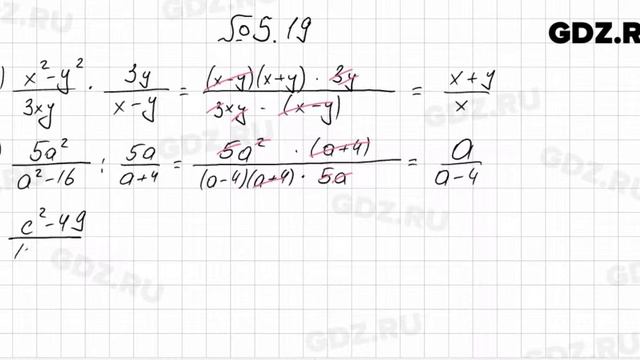 №5.19
GDZ.RU
) (x²-y²)/(3xy) · (3y)/(x-y) = ((x-y)(x+y) · 3y)/(3xy · (x-y)) = (x+y)/x
) (5a²)/(a²-16) : (5a)/(a+4) = (5a² · (a+4))/((a-4)(a+4) · 5a) = a/(a-4)
c²-49
GDZ.RU
GDZ.RU
GDZ.RU
GDZ.RU
GDZ.RU